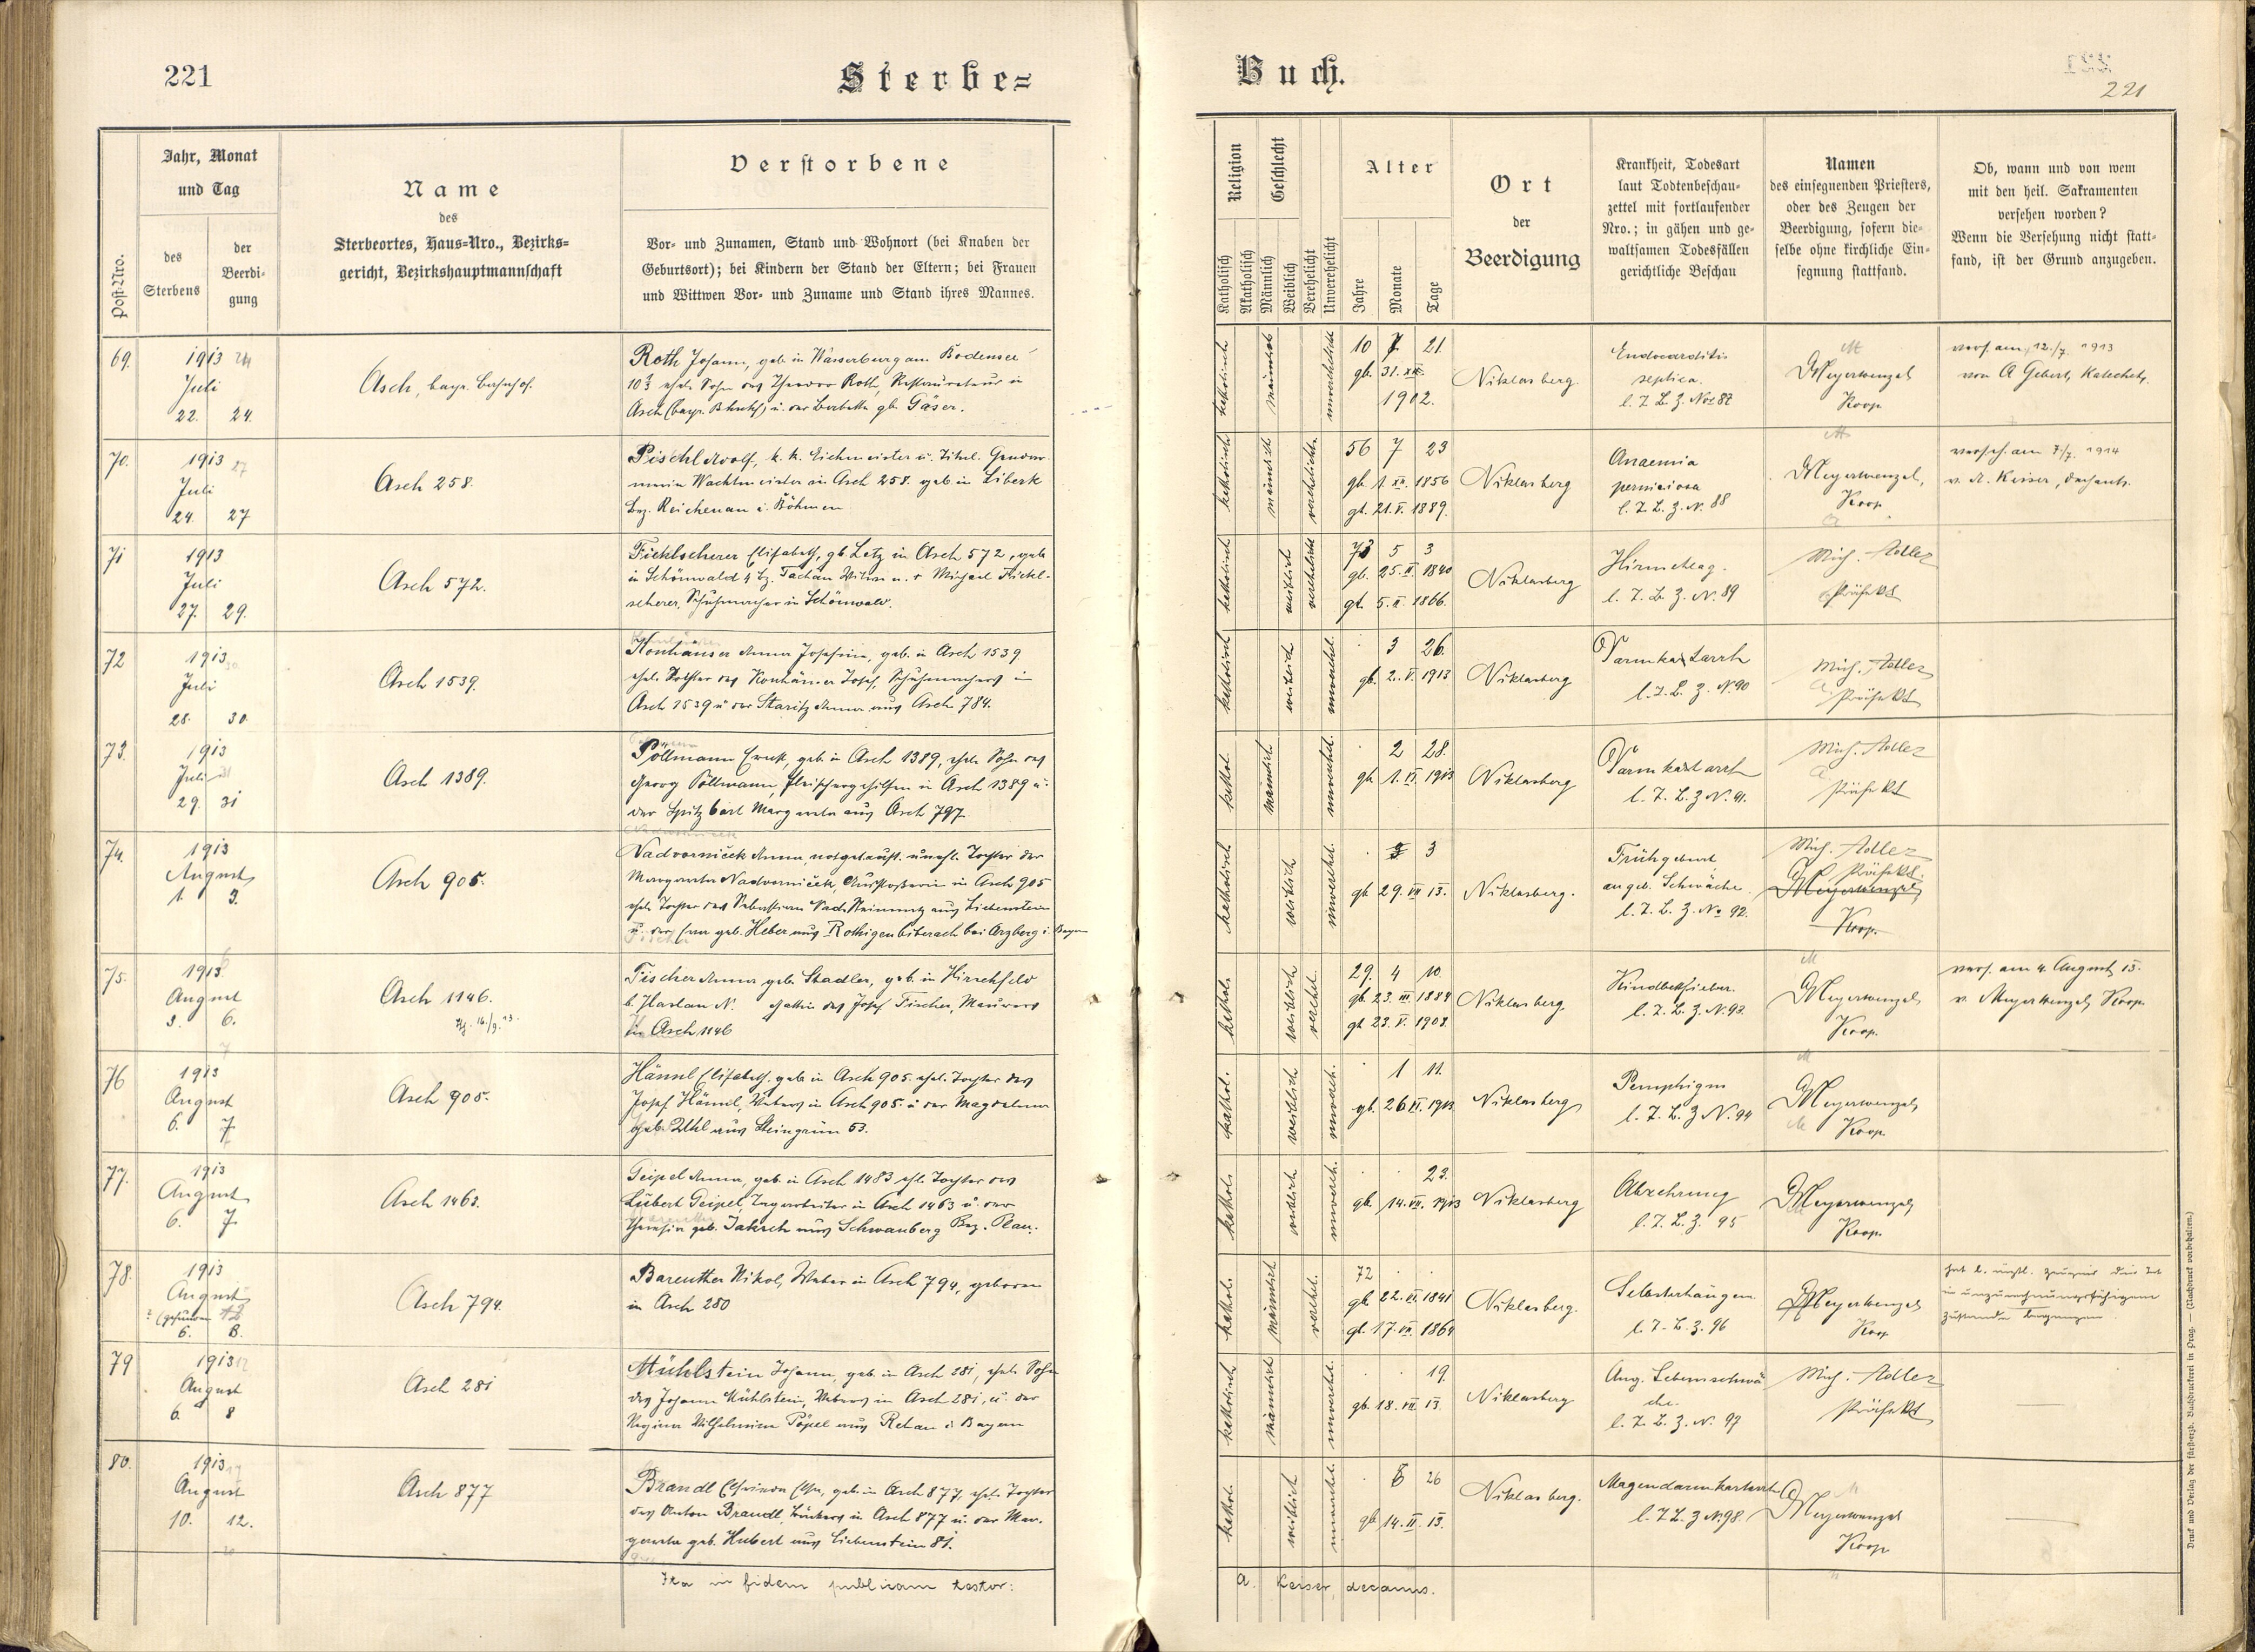 221
Sterbe=
Buch.
221
Post-Nro.
Jahr, Monat
und Tag
des
Sterbens
der
Beerdi-
gung
Name
des
Sterbeortes, Haus=Nro., Bezirks=
gericht, Bezirkshauptmannschaft
Verstorbene
Vor- und Zunamen, Stand und Wohnort (bei Knaben der
Geburtsort); bei Kindern der Stand der Eltern; bei Frauen
und Wittwen Vor- und Zuname und Stand ihres Mannes.
Religion
Katholisch
Akatholisch
Geschlecht
Männlich
Weiblich
Verehelicht
Unverehelicht
Alter
Jahre
Monate
Tage
Ort
der
Beerdigung
Krankheit, Todesart
laut Todtenbeschau-
zettel mit fortlaufender
Nro.; in gähen und ge-
waltsamen Todesfällen
gerichtliche Beschau
Namen
des einsegnenden Priesters,
oder des Zeugen der
Beerdigung, sofern die-
selbe ohne kirchliche Ein-
segnung stattfand.
Ob, wann und von wem
mit den heil. Sakramenten
versehen worden?
Wenn die Versehung nicht statt-
fand, ist der Grund anzugeben.
69.
1913
Juli
22. 24.
Asch, bayr. Bahnhof.
Roth Johann, geb. in Wasserburg am Bodensee
ehel. Sohn des Theodor Roth, Restaurateur in
Asch (bayr. Bhnhf) u. der Barbetta gb. Gäser.
katholisch
männlich
unverehelicht
10 7 21.
gb. 31. XII.
1902.
Niklasberg.
Endocarditis
septica.
l. T. B. Z. Nro 87
Meyerwenzel
Koop
vers. am 12./7. 1913
von A Gebert, Katechet.
70.
1913
Juli
24. 27
Asch 258.
Pischl Adolf, k. k. Eichmeister u. Titul. Gendar-
merie Wachtmeister in Asch 258. geb. in Liberk
Bez. Reichenau i. Böhmen
katholisch
männlich
verehelicht
56 7 23
gb. 1. XII. 1856
gt. 21. V. 1889.
Niklasberg
Anaemia
perniciosa
l. T. B. Z. N. 88
Meyerwenzel,
Koop
versch. am 7/7. 1914
v. A. Keiser, Dechant.
71
1913
Juli
27. 29.
Asch 572.
Ficklscherer Elisabeth, gb. Letz in Asch 572, geb.
in Schönwald 4 Bz. Tachau Witwe n. + Michael Fickl-
scherer, Schuhmacher in Schönwald.
katholisch
weiblich
verehelicht
73 5 3
gb. 25. II. 1840
gt. 5. II. 1866.
Niklasberg
Hirnschlag.
l. T. B. Z. N. 89
Mich. Adler
Präfekt
72
1913
Juli
28. 30.
Asch 1539.
Konhäuser Anna Josefina, geb. in Asch 1539
ehel. Tochter des Konhäuser Josef, Schuhmachers in
Asch 1539 u der Staritz Anna aus Asch 784.
katholisch
weiblich
unverehel.
3 26.
gb. 2. V. 1913
Niklasberg
Darmkatarrh
l. T. B. Z. N. 90
Mich. Adler
Präfekt
73.
1913
Juli
29. 31
Asch 1389.
Pöllmann Ernst, geb. in Asch 1389, ehel. Sohn des
Georg Pöllmann, Fleischergehilfen in Asch 1389 u.
der Spitzbart Margareta aus Asch 797.
kathol.
männlich
unverehel.
2 28.
gb. 1. VI. 1913
Niklasberg
Darmkatarrh
l. T. B. Z N. 91.
Mich. Adler
Präfekt
74.
1913
August
1. 3.
Asch 905.
Nadvorniček Anna, notgetauft. unehl. Tochter der
Margareta Nadvorniček, in Asch 905
ehel. Tochter des Sebastian aus Liebenstein
u. der geb. Heber aus Rothigenbiberach bei Arzberg i. Bayern
katholisch
weiblich
unverehel.
3
gb 29. VII 13.
Niklasberg.
Frühgeburt
angeb. Schwäche.
l. T. B. Z. No 92.
Mich. Adler
Präfekt.
Meyerwenzel
Koop.
75.
1913
August
3. 6.
Asch 1146.
Fischer Anna geb. Stadler, geb. in Hirschfeld
b. Haslau N. Gattin des Josef Fischer, Maurers
in Asch 1146
kathol.
weiblich
verehel.
29. 4 10.
gb. 23. III. 1884
gt. 23. V. 1903.
Niklasberg.
Kindbettfieber.
l. T. B. Z. N. 93.
Meyerwenzel
Koop.
vers. am 4. August 13.
v. Meyerwenzel Koop.
76
1913
August
6. 7.
Asch 905.
Hännl Elisabeth. geb. in Asch 905. ehel. Tochter des
Josef Hännl, Webers in Asch 905. u der Magdalena
geb. Uhl aus Steingrün 53.
kathol.
weiblich
unvereh.
1 11.
gb. 26 VI. 1913
Niklasberg
Pemphigus
l. T. B. Z N. 94
Meyerwenzel
Koop.
77.
1913
August
6. 7.
Asch 1463.
Geipel Anna, geb. in Asch 1483 ehl. Tochter des
Lübert Geipel, Tagarbeiter in Asch 1463 u. der
Theresia geb. Jaksch aus Schwanberg Bez. Plan.
kathol.
weiblich
unvereh.
23.
gb. 14. VII. 1913
Niklasberg
Abzehrung
l. T. B. Z. 95
Meyerwenzel
Koop.
78.
1913
August
? (gefunden
6. 8.
Asch 794.
Bareuther Nikol, Weber in Asch 794, geboren
in Asch 280
kathol.
männlich
verehel.
72
gb. 22. VI. 1841
gt. 17. VII. 1864
Niklasberg.
Selbsterhängen
l. T. B. Z. 96
Meyerwenzel
Koop
hat l. ärztl. Zeugnis die Tat
in unzurechnungsfähigem
Zustande begangen.
79
1913
August
6. 8
Asch 281
Mühlstein Johann, geb. in Asch 281, ehel. Sohn
des Johann Mühlstein, Webers in Asch 281, u. der
Regina Wilhelmine Pöpel aus Rehau i. Bayern
katholisch
männlich
unverehel.
19.
gb. 18. VII. 13.
Niklasberg
Ang. Lebensschwä
che.
l. T. B. Z. N. 97
Mich. Adler
Präfekt
80.
1913
August
10. 12.
Asch 877
Brandl Elsa, geb. in Asch 877, ehel. Tochter
des Anton Brandl, Bäckers in Asch 877 u. der Mar-
gareta geb. Hubert aus Liebenstein 81.
kathol.
weiblich
unverehel.
26
gb. 14. II. 13.
Niklasberg.
Magendarmkatarrh
l. T. B. Z N. 98.
Meyerwenzel
Koop
Ita in fidem publicam testor:
A. Keiser, decanus.
Druck und Verlag der fürsterzb. Buchdruckerei in Prag. — (Nachdruck vorbehalten.)